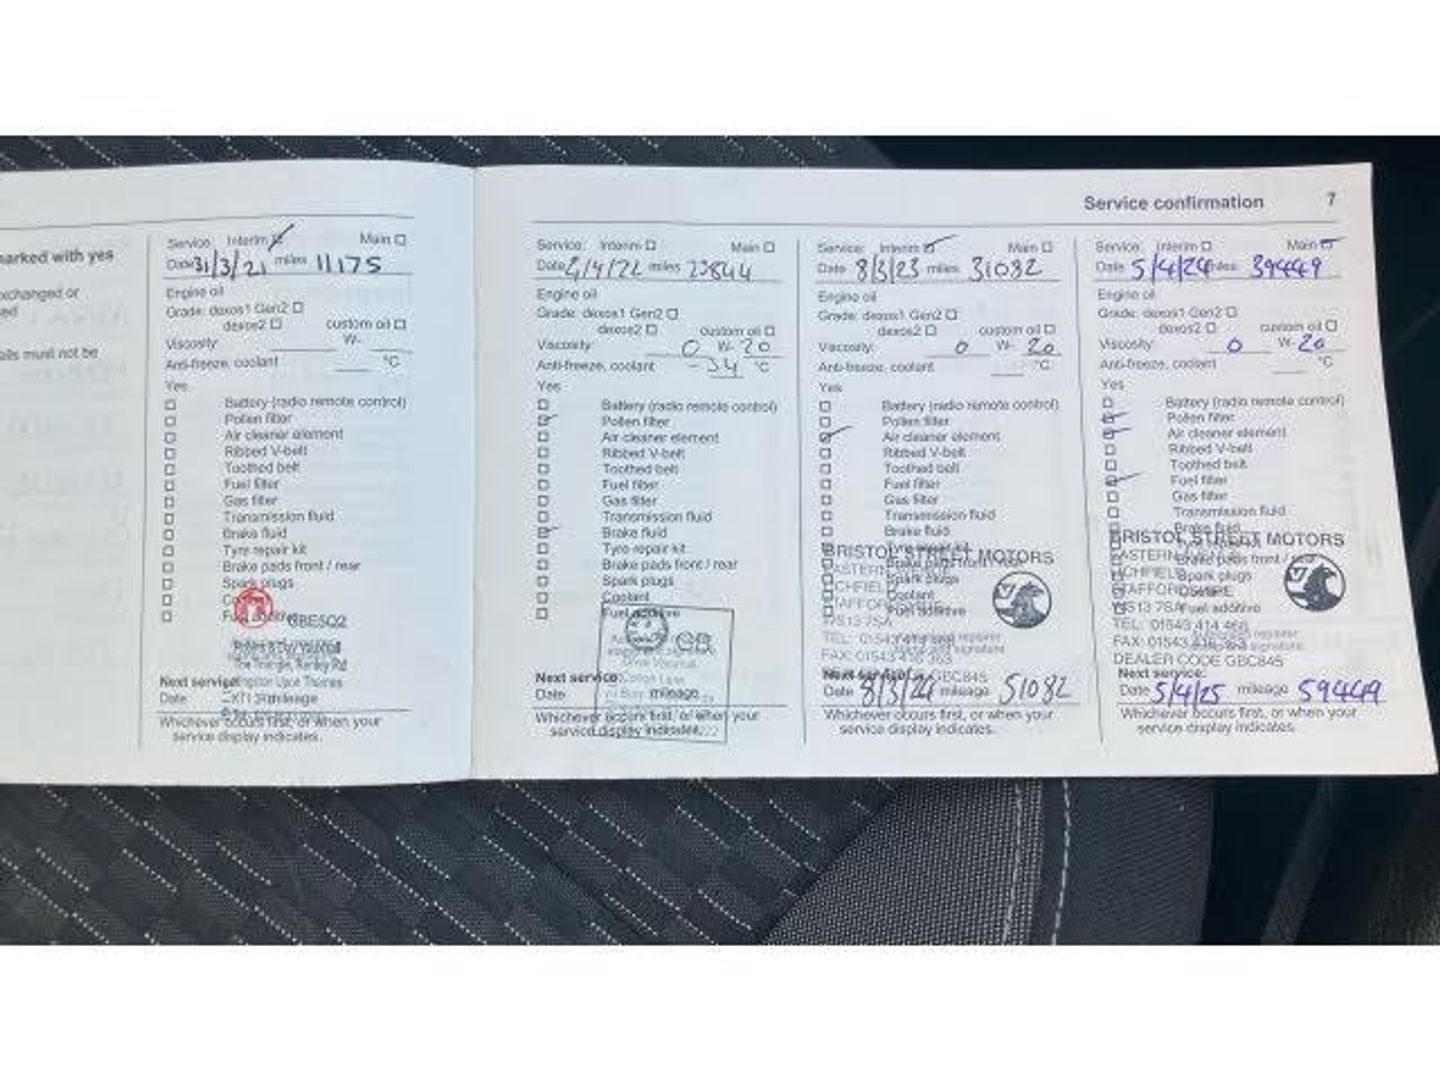 Service confirmation 7
marked with yes
exchanged or
must not be
Service: Interim Main
Date 31/3/21 miles 11175
Engine oil
Grade: dexos1 Gen2
dexos2 custom oil
Viscosity: W-
Anti-freeze, coolant °C
Yes
Battery (radio remote control)
Pollen filter
Air cleaner element
Ribbed V-belt
Toothed belt
Fuel filter
Gas filter
Transmission fluid
Brake fluid
Tyre repair kit
Brake pads front / rear
Spark plugs
GBE5Q2
Next service:
Date mileage
Whichever occurs first, or when your
service display indicates.
Service: Interim Main
Date /4/22 miles
Engine oil
Grade: dexos1 Gen2
dexos2 custom oil
Viscosity: 0 W- 20
Anti-freeze, coolant -34 °C
Yes
Battery (radio remote control)
Pollen filter
Air cleaner element
Ribbed V-belt
Toothed belt
Fuel filter
Gas filter
Transmission fluid
Brake fluid
Tyre repair kit
Brake pads front / rear
Spark plugs
Coolant
Fuel additive
Next service:
Date mileage
Whichever occurs first, or when your
service display indicates.
Service: Interim Main
Date 8/3/23 miles 31082
Engine oil
Grade: dexos1 Gen2
dexos2 custom oil
Viscosity: 0 W- 20
Anti-freeze, coolant °C
Yes
Battery (radio remote control)
Pollen filter
Air cleaner element
Ribbed V-belt
Toothed belt
Fuel filter
Gas filter
Transmission fluid
Brake fluid
BRISTOL STREET MOTORS
Brake pads front
Spark plugs
Coolant
Fuel additive
WS13 7SA
TEL: 01543 414 466
FAX: 01543 416 363
GBC845
Next service:
Date 8/3/24 mileage 51082
Whichever occurs first, or when your
service display indicates.
Service: Interim Main
Date 5/4/24 miles 39449
Engine oil
Grade: dexos1 Gen2
dexos2 custom oil
Viscosity: 0 W- 20
Anti-freeze, coolant °C
Yes
Battery (radio remote control)
Pollen filter
Air cleaner element
Ribbed V-belt
Toothed belt
Fuel filter
Gas filter
Transmission fluid
Brake fluid
BRISTOL STREET MOTORS
EASTERN
Brake pads front /
Spark plugs
WS13 7SA Fuel additive
TEL: 01543 414 466
FAX: 01543 416 363
DEALER CODE GBC845
Next service:
Date 5/4/25 mileage 59449
Whichever occurs first, or when your
service display indicates.